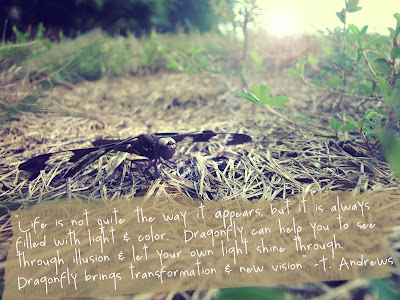 "Life is not quite the way it appears, but it is always
filled with light & color. Dragonfly can help you to see
through illusion & let your own light shine through.
Dragonfly brings transformation & new vision" -T. Andrews